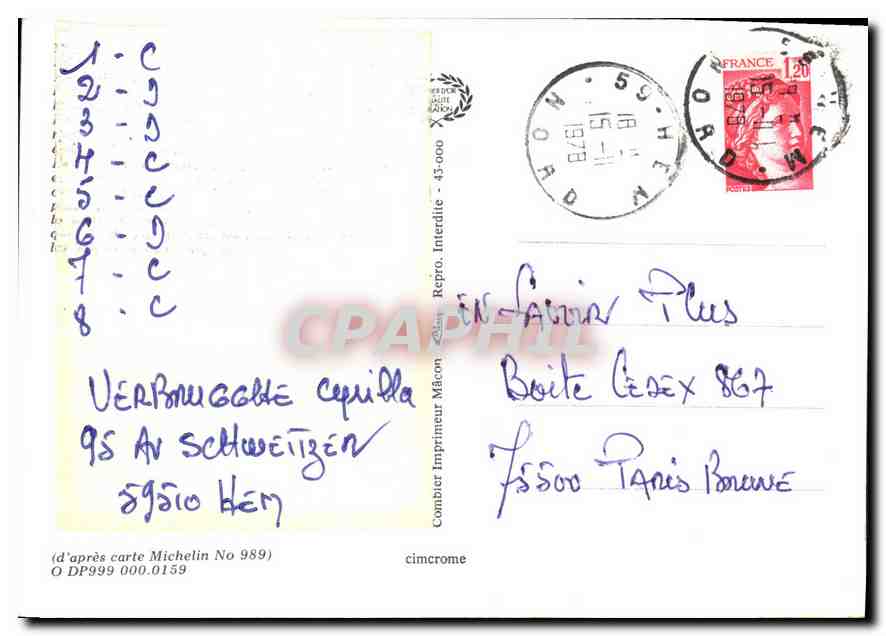 1 - C
2 - D
3 - D
4 - C
5 - C
6 - D
7 - C
8 - C
VERBRUGGHE Cyrilla
95 AV SCHWEITZER
59510 HEM
(d'après carte Michelin No 989)
O DP999 000.0159
Combier Imprimeur Mâcon
Repro. Interdite - 43-000
cimcrome
59-HEM
NORD
18 H
15-11
1978
FRANCE
1,20
59-HEM
NORD
15-11
1978
EN SAVOIR PLUS
BOITE CEDEX 867
75500 PARIS BRUNE
CPAPHIL